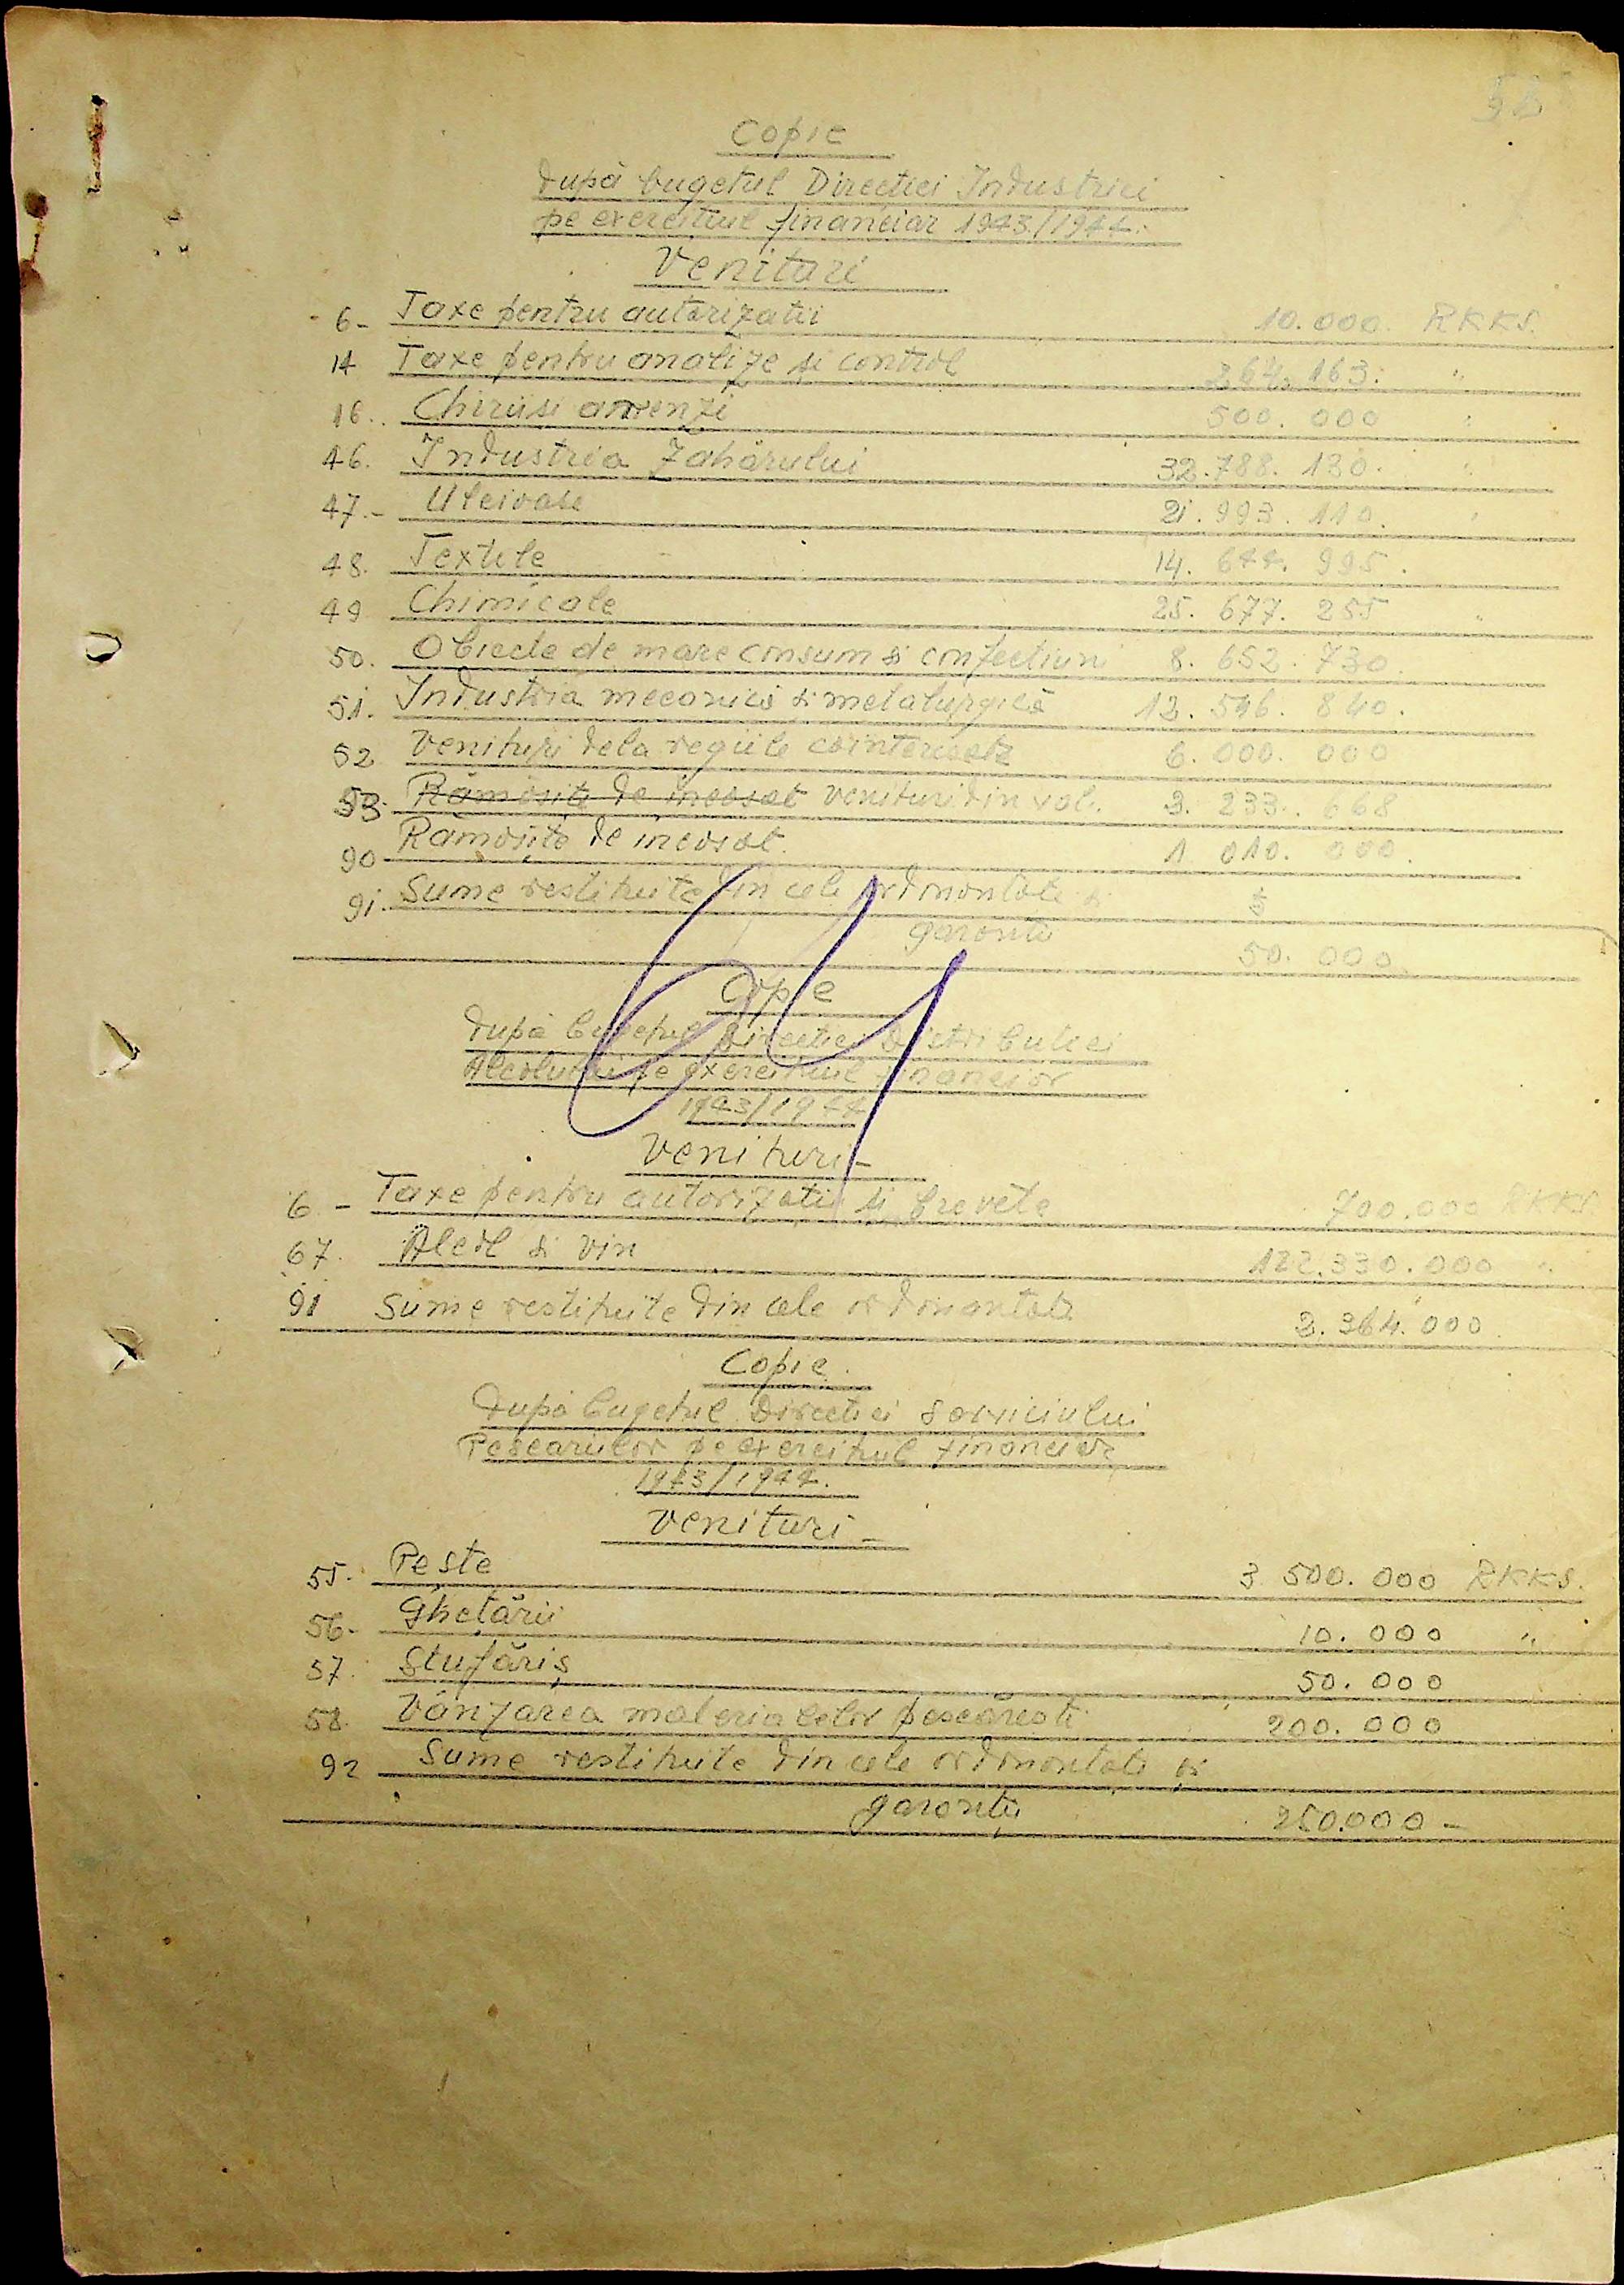 Copie
după bugetul Direcției Industriei
pe exercițiul financiar 1943/1944.
Venituri
6- Taxe pentru autorizatii 10.000. RKKS.
14 Taxe pentru analize și control 264.163. "
16. Chirii si arenzi 500.000 "
46. Industria Zahărului 32.788.130. "
47.- Uleioase 21.993.110. "
48. Textile 14.644.995.
49 Chimicale 25.677.255 "
50. Obiecte de mare consum si confectiuni 8.652.730.
51. Industria mecanică si metalurgică 12.546.840.
52 Venituri dela regiile cointeresate 6.000.000
53. Rămășite de incasat venituri din 3.233.668
90 Rămășite de incasat. 1.010.000.
91. Sume restituite din cele ordonantate si
garantii 50.000.
Copie
după bugetul Directiei Distributiei
Alcolului pe exercitiul financiar
1943/1944
Venituri-
6.- Taxe pentru autorizatii si brevete 700.000 RKKS.
67. Alcol si vin 122.330.000 "
91 Sume restituite din cele ordonantate 2.364.000.
Copie.
După bugetul Directiei Serviciului
Pescariilor pe exercitiul financiar
1943/1944.
Venituri-
55. Peste 3.500.000 RKKS.
56- Ghețării 10.000 "
57. Stufăriș 50.000
58. Vânzarea materialelor pescăresti 200.000
92 Sume restituite din cele ordonantate si
garanții 250.000-